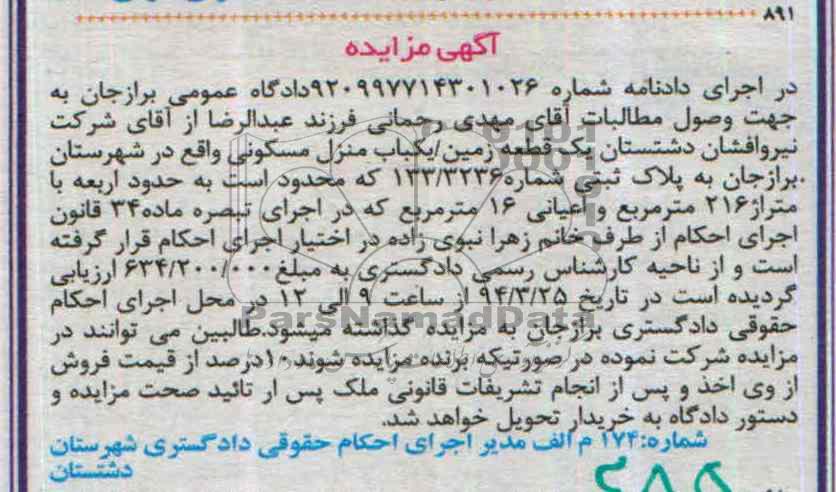 ۸۹۱
آگهی مزایده
در اجرای دادنامه شماره ۹۲۰۹۹۷۷۱۴۳۰۱۰۲۶دادگاه عمومی برازجان به
جهت وصول مطالبات آقای مهدی رحمانی فرزند عبدالرضا از آقای شرکت
نیروافشان دشتستان یک قطعه زمین/یکباب منزل مسکونی واقع در شهرستان
برازجان به پلاک ثبتی شماره۱۳۳/۳۲۳۶ که محدود است به حدود اربعه با
متراژ۲۱۶ مترمربع و اعیانی ۱۶ مترمربع که در اجرای تبصره ماده۳۴ قانون
اجرای احکام از طرف خانم زهرا نبوی زاده در اختیار اجرای احکام قرار گرفته
است و از ناحیه کارشناس رسمی دادگستری به مبلغ۶۳۴/۲۰۰/۰۰۰ ارزیابی
گردیده است در تاریخ ۹۴/۳/۲۵ از ساعت ۹ الی ۱۲ در محل اجرای احکام
حقوقی دادگستری برازجان به مزایده گذاشته میشود.طالبین می توانند در
مزایده شرکت نموده در صورتیکه برنده مزایده شوند۱۰درصد از قیمت فروش
از وی اخذ و پس از انجام تشریفات قانونی ملک پس ار تائید صحت مزایده و
دستور دادگاه به خریدار تحویل خواهد شد.
شماره:۱۷۴ م الف مدیر اجرای احکام حقوقی دادگستری شهرستان
دشتستان
ParsNamadData